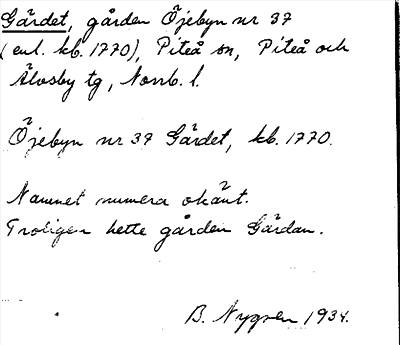 Gärdet, gården Öjebyn nr 37
(enl. kb. 1770), Piteå sn, Piteå och
Älvsby tg, Norrb. l.
Öjebyn nr 37 Gärdet, kb. 1770.
Namnet numera okänt.
Troligen hette gården Gärdan.
B. Nygren 1934.